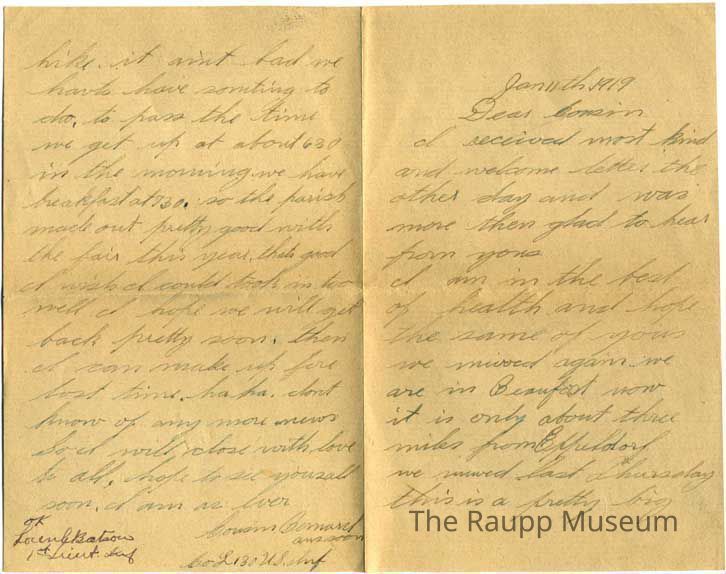 Jan 11th 1919
Dear Cousin
I received most kind
and welcome letter the
other day and was
more then glad to hear
from yous
I am in the best
of health and hope
the same of yous
we muved again. we
are in Beaufort now
it is only about three
miles from
we muved last Thursday
this is a pretty big
hike. it aint bad we
havto have somting to
do. to pass the time
we get up at about 630
in the morning we have
breakfast at 730. so the parish
made out pretty good with
the fair this year. thats good
I wish I could took in two
well I hope we will get
back pretty soon. then
I can make up fore
lost time. ha ha. dont
know of any more news
So I will close with love
to all, hope to see yous all
soon. I am as ever
Cousin Bernard
Co L 130 U.S. Inf
OK
1st Lieut. Inf
The Raupp Museum